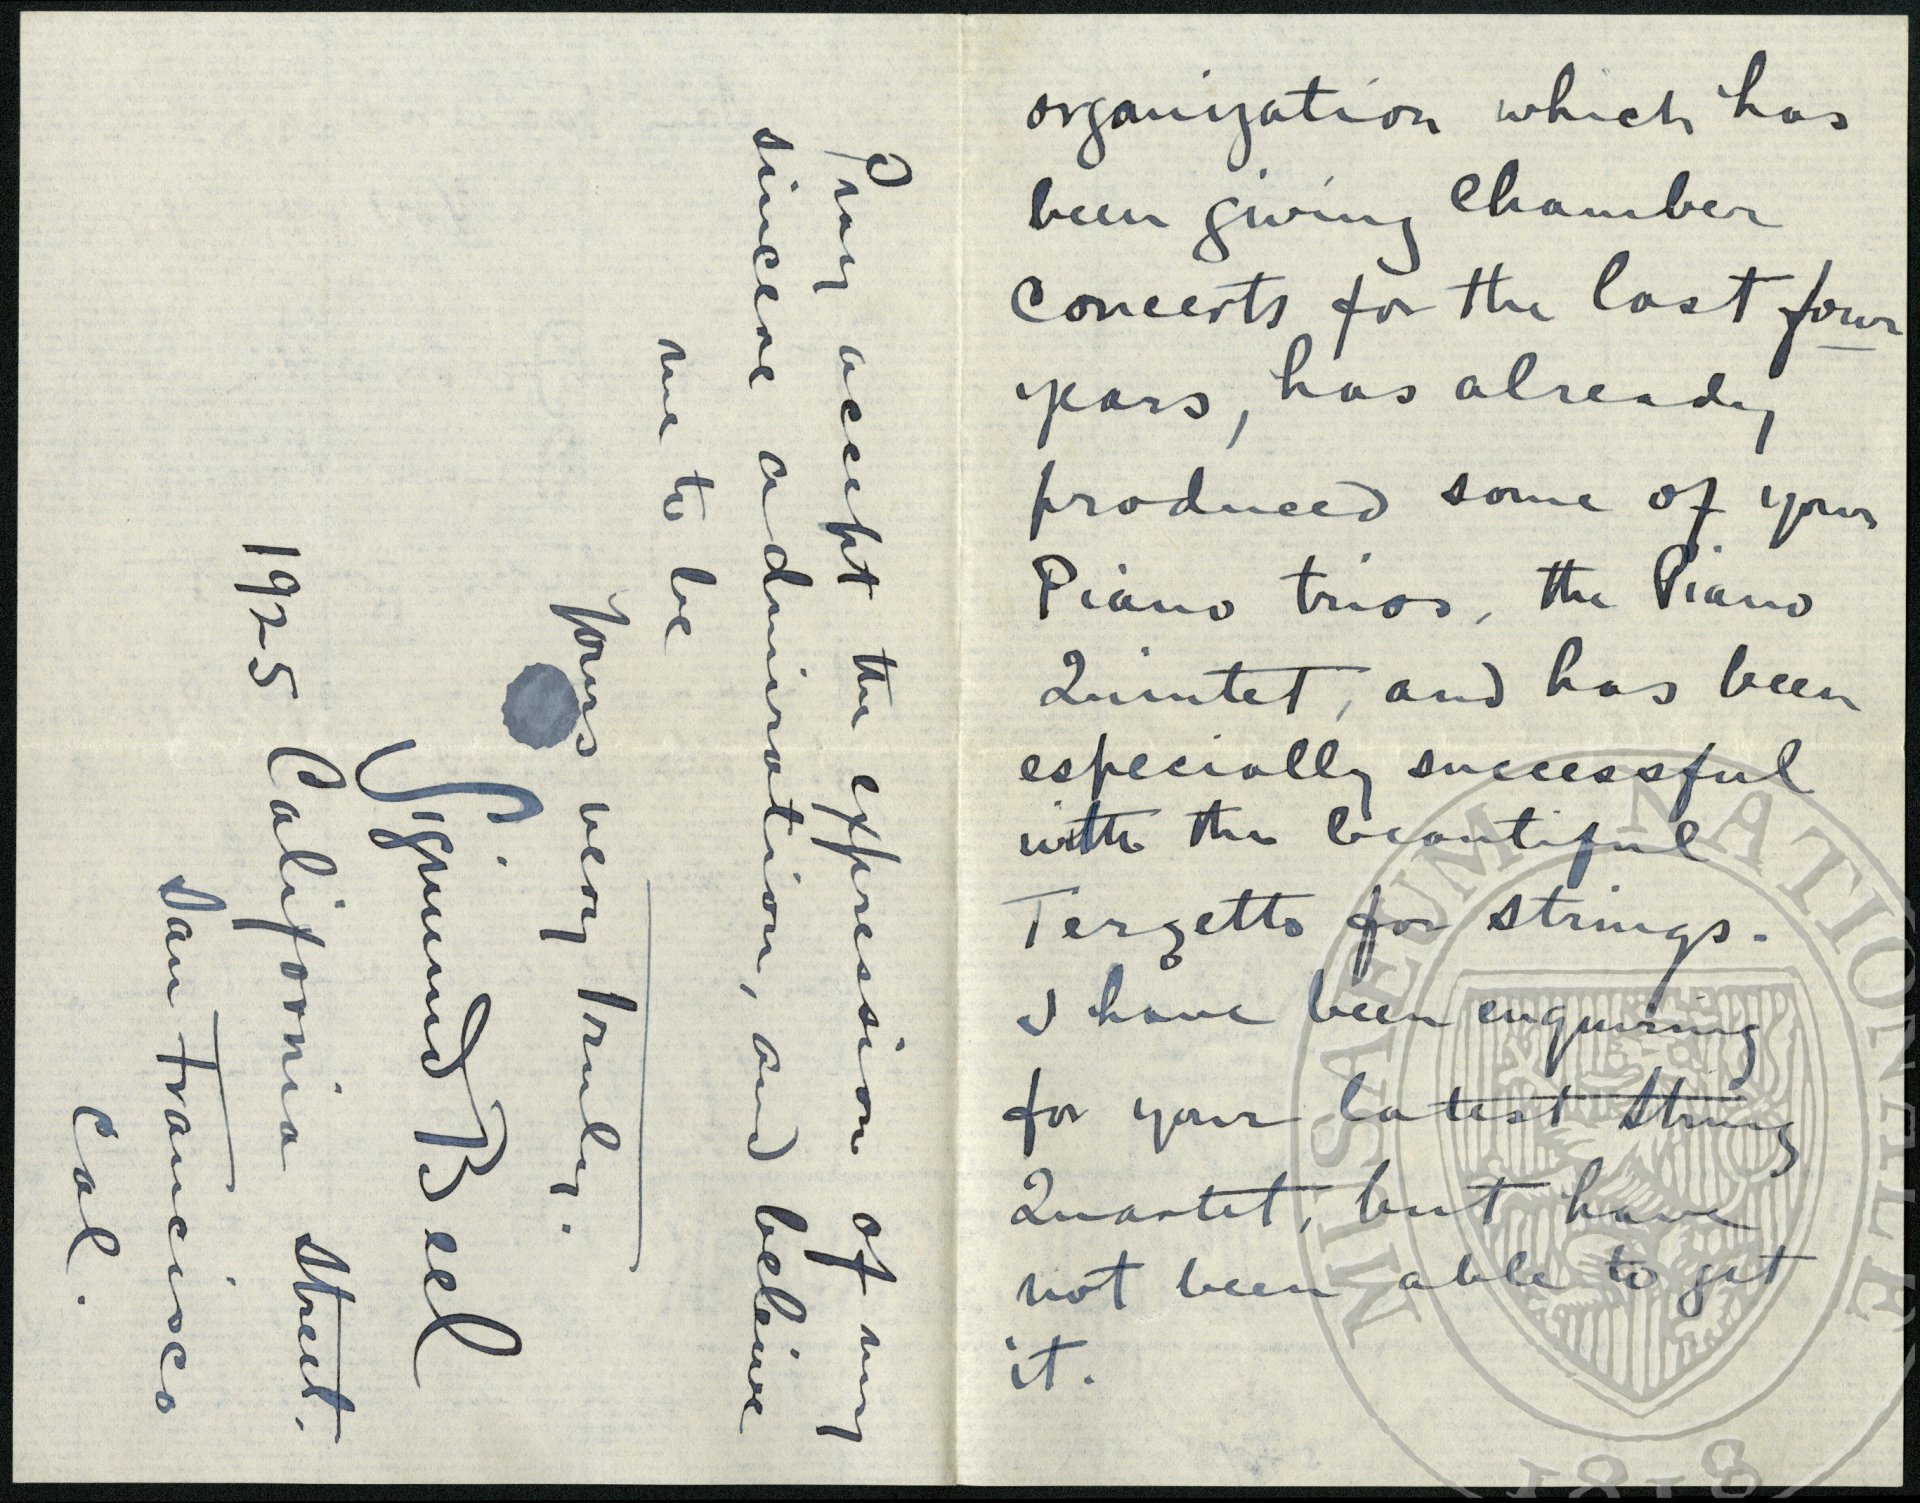 organization which has
been giving Chamber
Concerts for the last four
years, has already
produced some of your
Piano trios, the Piano
Quintet, and has been
especially successful
with the beautiful
Terzetto for strings.
I have been enquiring
for your latest String
Quartet, but have
not been able to get
it.
Pray accept the expression of my
sincere admiration, and believe
me to be
Yours very truly.
Sigmund Beel
1925 California Street.
San Francisco
Cal.
MUSAEUM NATIONALE
1818